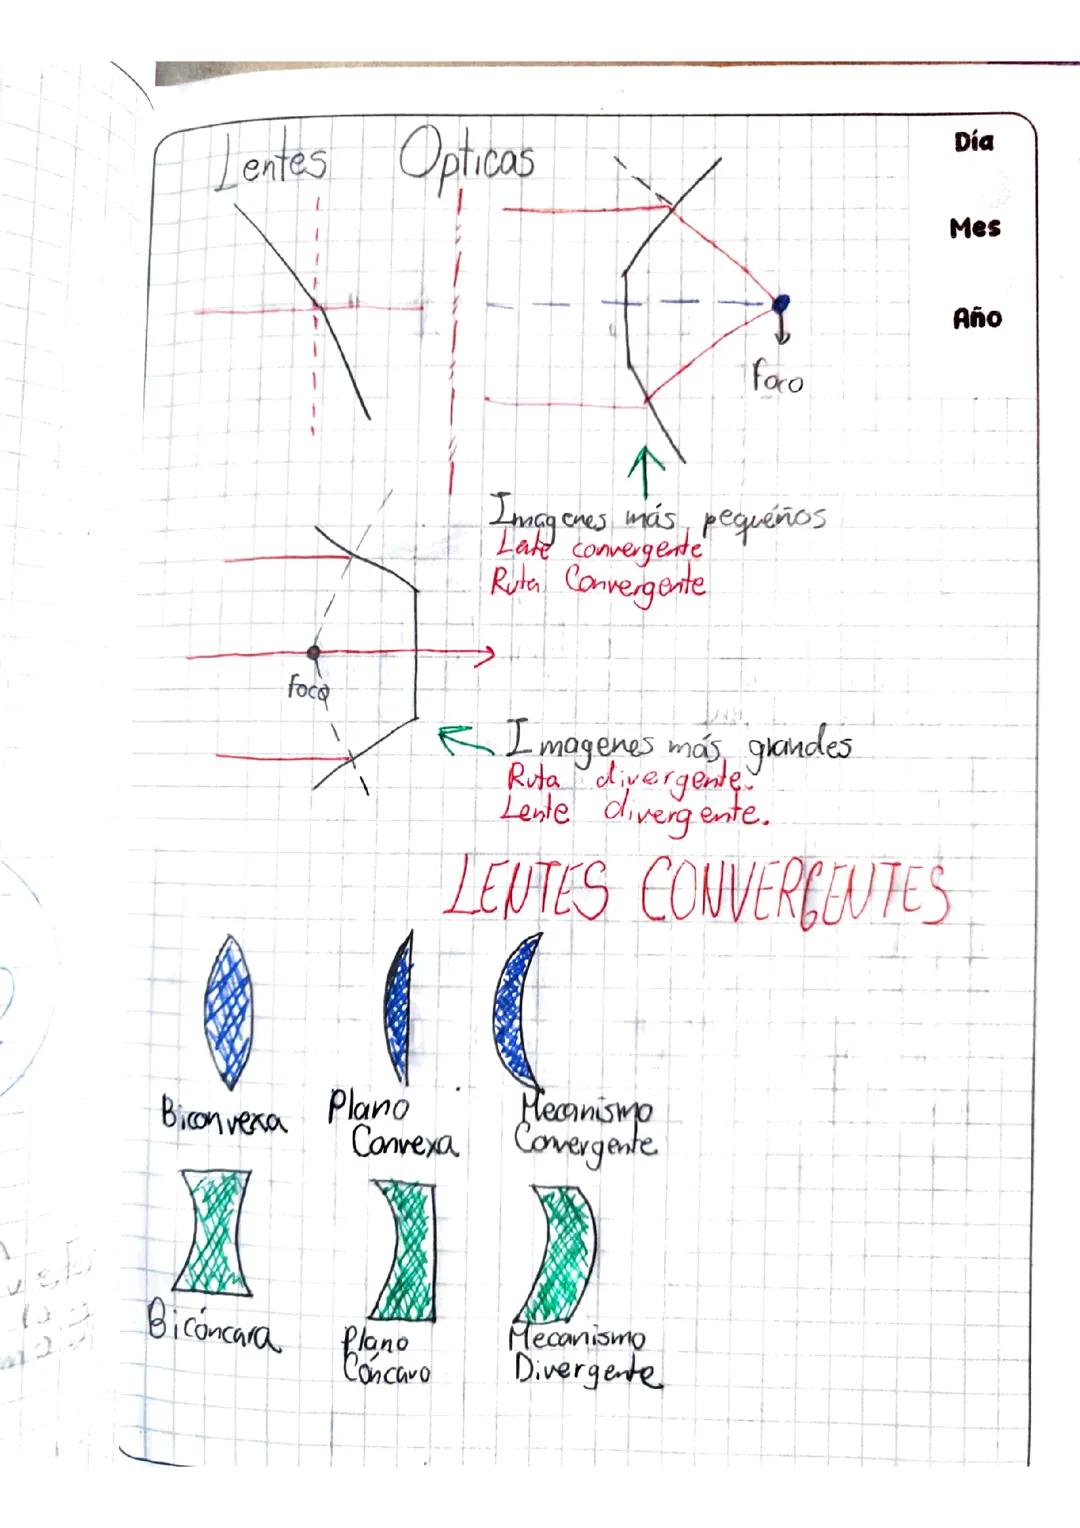 Lentes Opticas
Día
Mes
Año
foco
Imagenes más pequeños
Lete convergente
Ruta Convergente
foco
Imagenes más grandes
Ruta divergente.
Lente divergente.
LENTES CONVERGENTES
Biconvexa
Plano
Convexa
Mecanismo
Convergente
Bicóncara
Plano
Cóncavo
Mecanismo
Divergente